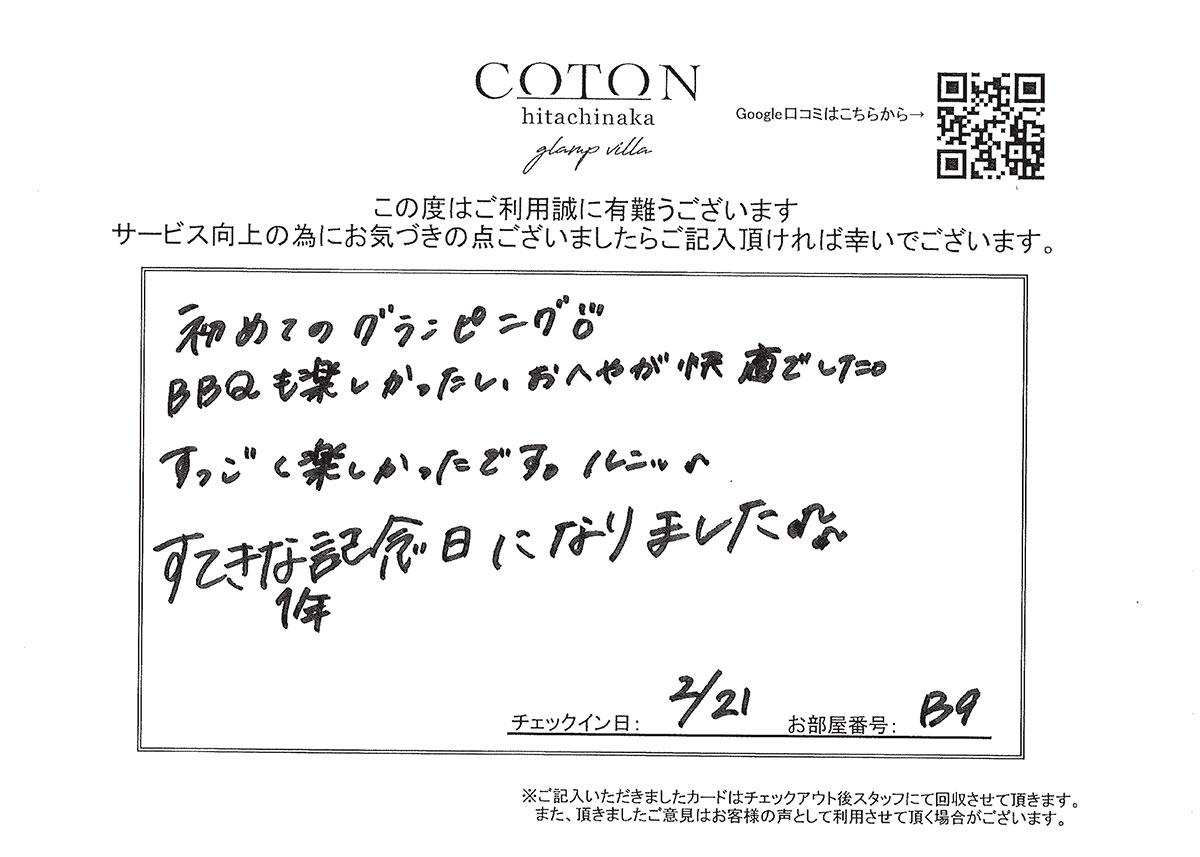 COTON
hitachinaka
glamp villa
Google口コミはこちらから→
この度はご利用誠に有難うございます
サービス向上の為にお気づきの点ございましたらご記入頂ければ幸いでございます。
初めてのグランピング
BBQも楽しかったし、おへやが快適でした。
すっごく楽しかったです。
すてきな記念日になりました♪♪
1年
チェックイン日: 2/21 お部屋番号: B9
※ご記入いただきましたカードはチェックアウト後スタッフにて回収させて頂きます。
また、頂きましたご意見はお客様の声として利用させて頂く場合がございます。